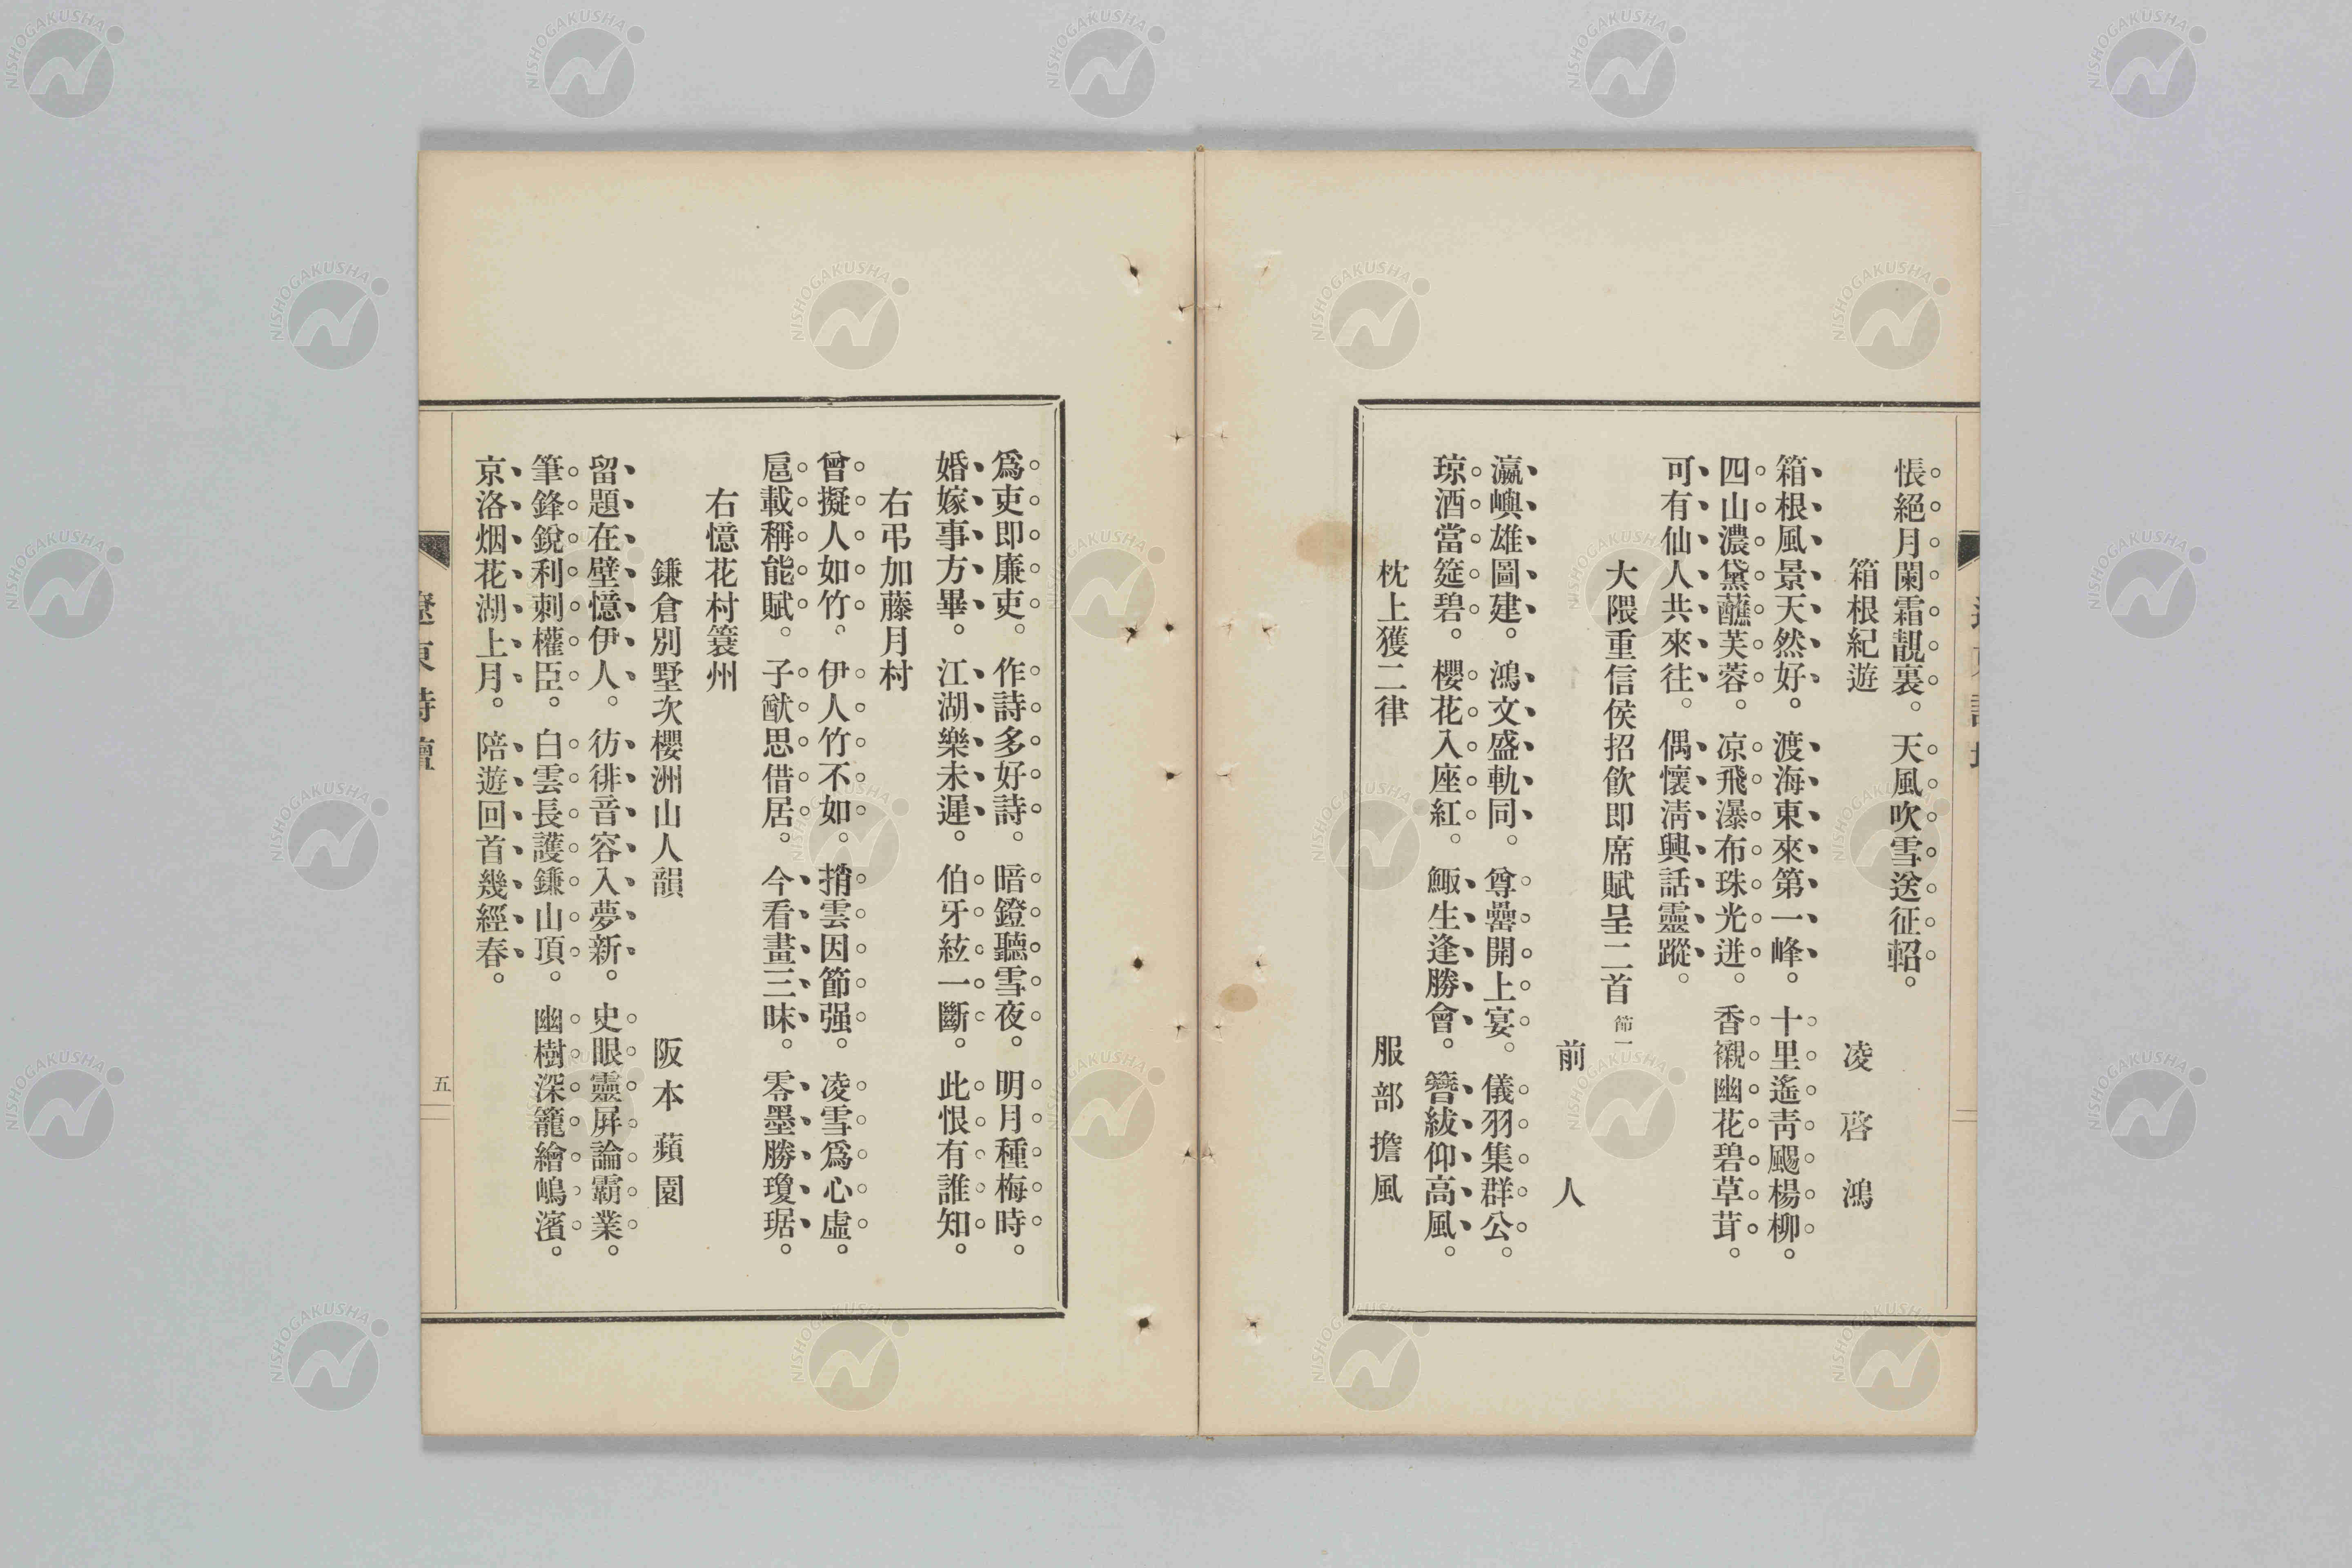 悵絕月闌霜靚裏。天風吹雪送征軺。
箱根紀遊
凌啓鴻
箱根風景天然好。渡海東來第一峰。十里遙靑颺楊柳。
四山濃黛蘸芙蓉。凉飛瀑布珠光迸。香襯幽花碧草茸。
可有仙人共來往。偶懷淸興話靈蹤。
大隈重信侯招飮即席賦呈二首 節一
前人
瀛嶼雄圖建。鴻文盛軌同。尊罍開上宴。儀羽集群公。
琼酒當筵碧。櫻花入座紅。鯫生逢勝會。簪紱仰高風。
枕上獲二律
服部擔風
爲吏即廉吏。作詩多好詩。暗鐙聽雪夜。明月種梅時。
婚嫁事方畢。江湖樂未遲。伯牙絃一斷。此恨有誰知。
右弔加藤月村
曾擬人如竹。伊人竹不如。捎雲因節强。凌雪爲心虛。
扈載稱能賦。子猷思借居。今看畫三昧。零墨勝瓊琚。
右憶花村簑州
鎌倉別墅次櫻洲山人韻
阪本蘋園
留題在壁憶伊人。彷徘音容入夢新。史眼靈屛論霸業。
筆鋒銳利刺權臣。白雲長護鎌山頂。幽樹深籠繪嶋濱。
京洛烟花湖上月。陪遊回首幾經春。
遼東詩壇
五
NISHOGAKUSHA